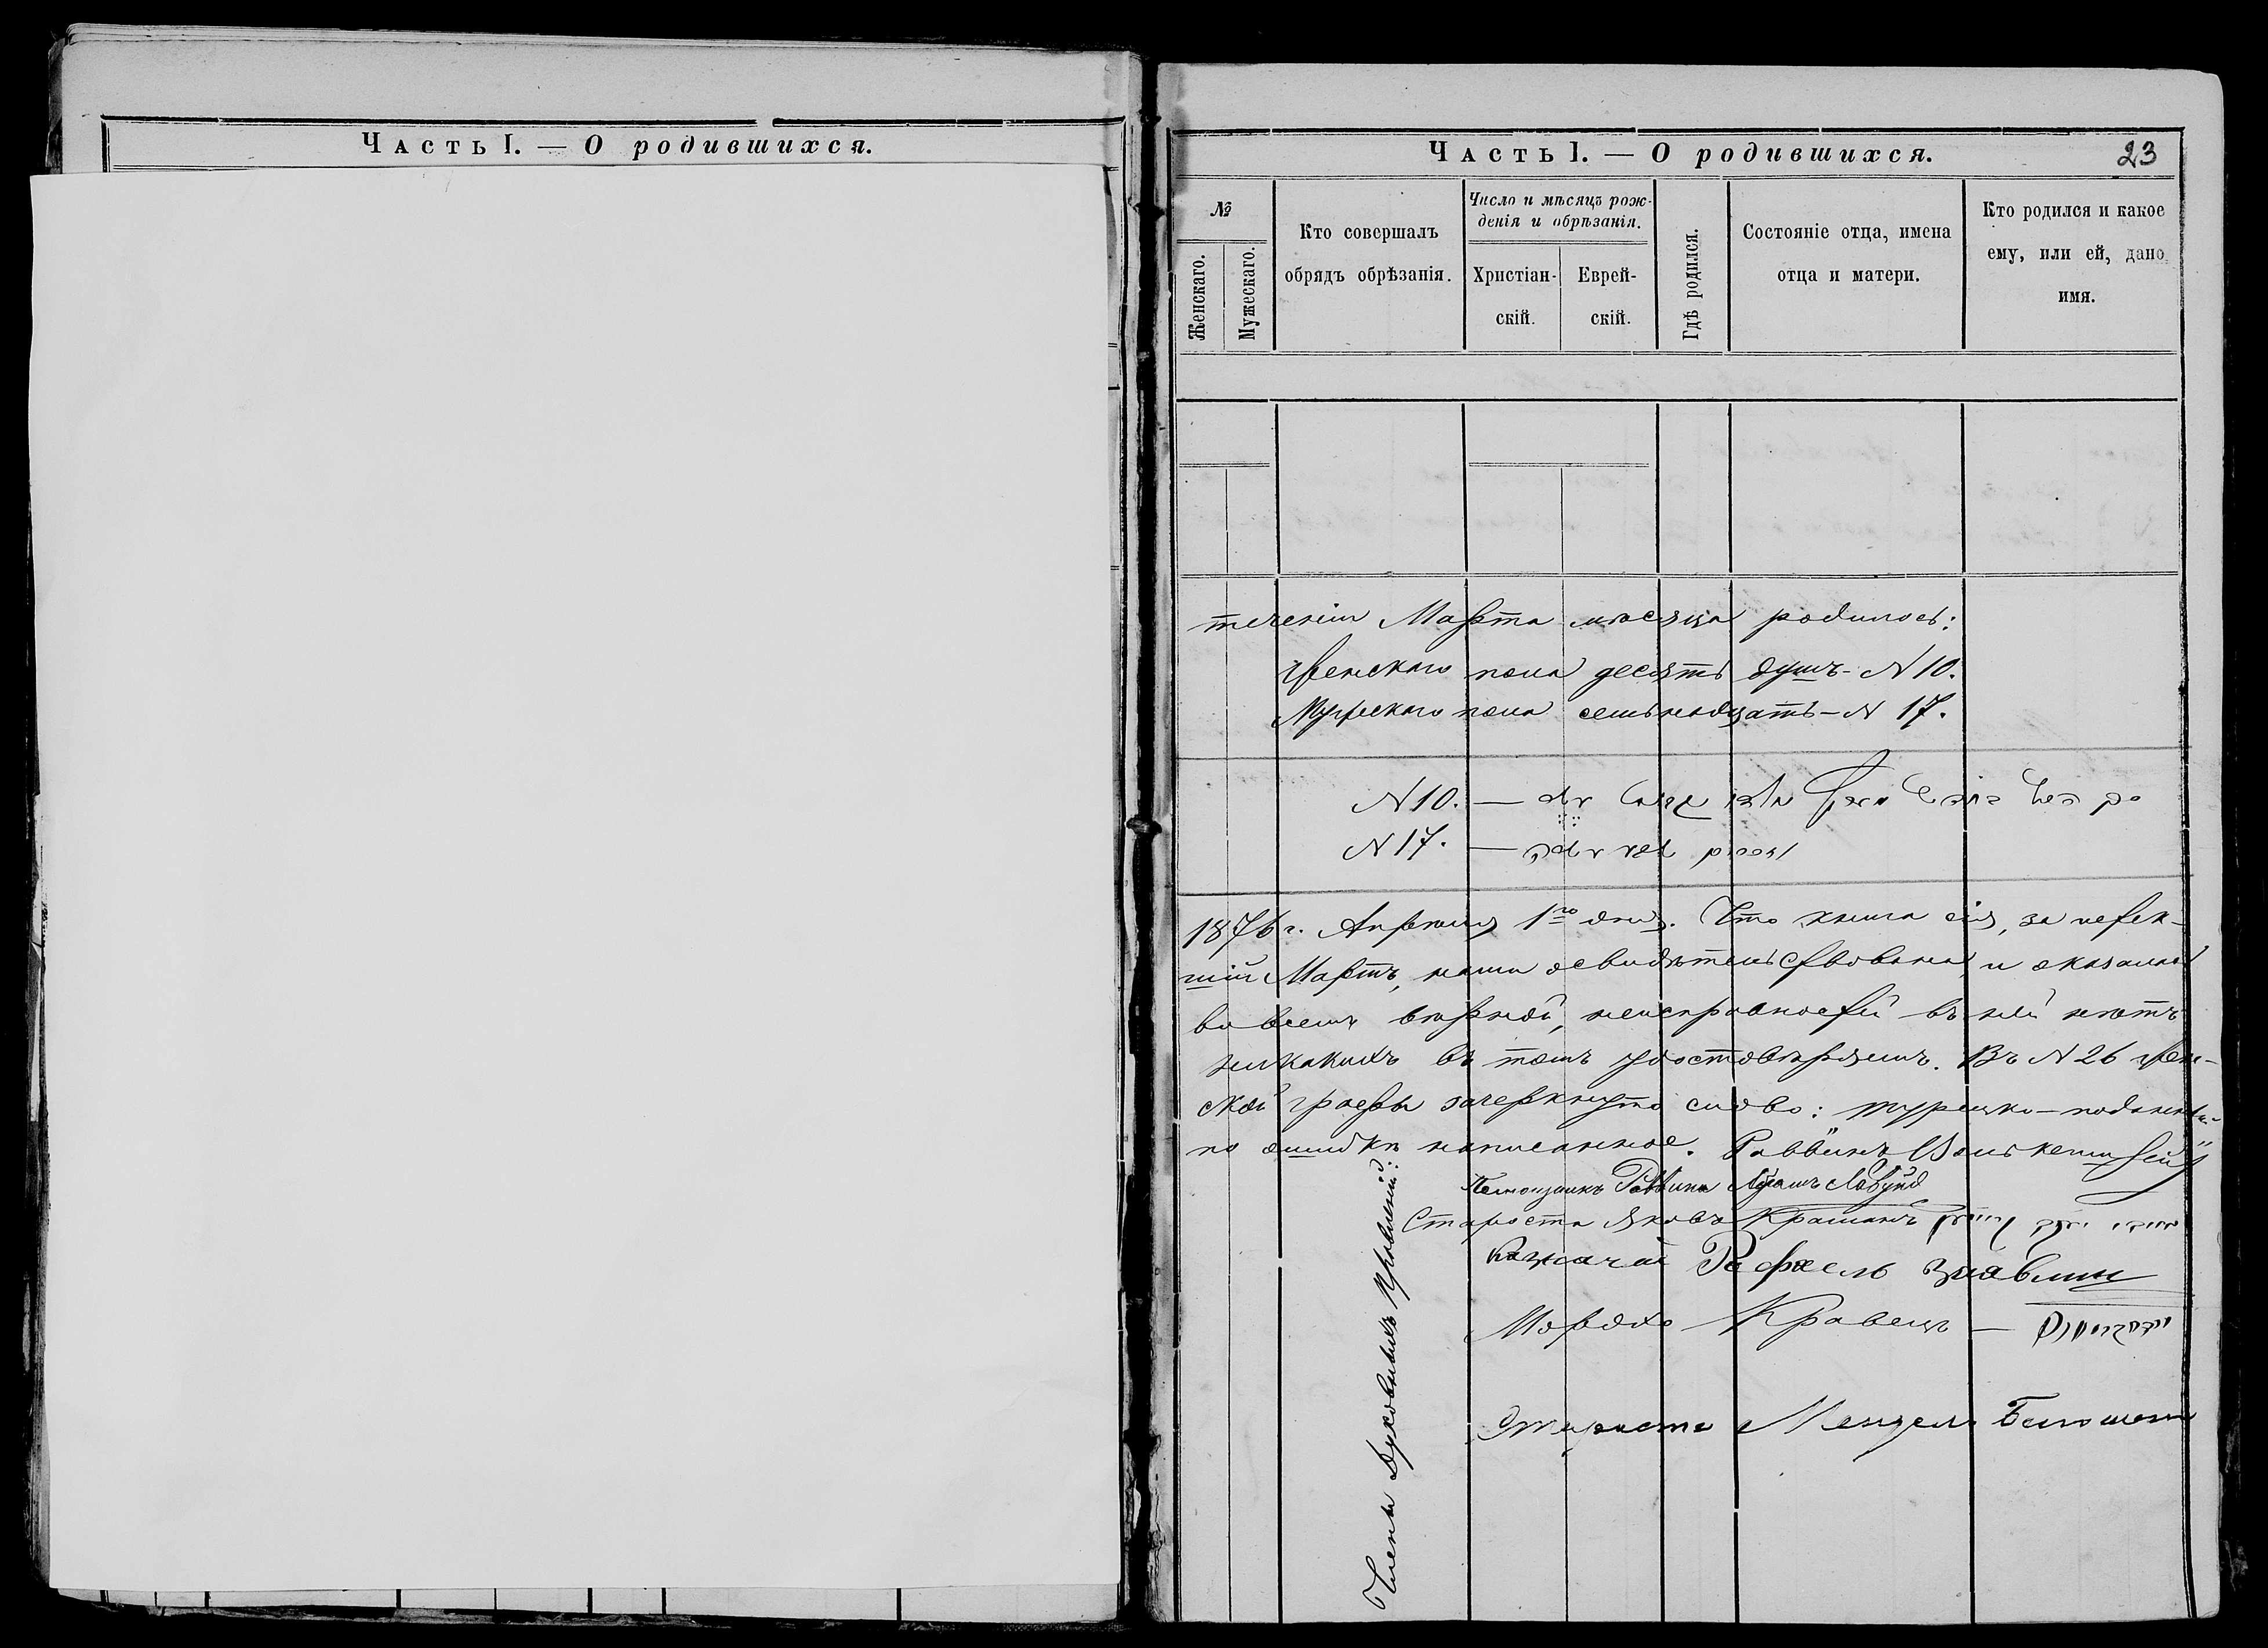 Часть I. — О родившихся.
Часть I. — О родившихся. 23
№
Женскаго.
Мужескаго.
Кто совершалъ
обрядъ обрѣзанія.
Число и мѣсяцъ рож-
денія и обрѣзанія.
Христіан-
скій.
Еврей-
скій.
Гдѣ родился.
Состояніе отца, имена
отца и матери.
Кто родился и какое
ему, или ей, дано
имя.
теченіи Марта мѣсяца родилось:
женскаго пола десять душъ - N 10.
Мужескаго пола семьнадцать - N 17.
N 10. —
N 17. —
1876 г. Апрѣля 1го дня. Что книга сія, за истек-
шій Мартъ, нами освидѣтельствована и оказалась
во всемъ вѣрной, неисправностей въ ней нѣтъ
никакихъ въ томъ удостовѣряемъ. Въ N 26 жен-
ской графы зачеркнуто слово: турецко-поданный
по ошибкѣ написанное. Раввинъ
Помощникъ Раввина
Староста Яковъ Крашанъ
Казначай Рафаель
Мордко Кравецъ —
Староста Мендель
Члены Духовныхъ Правленій: